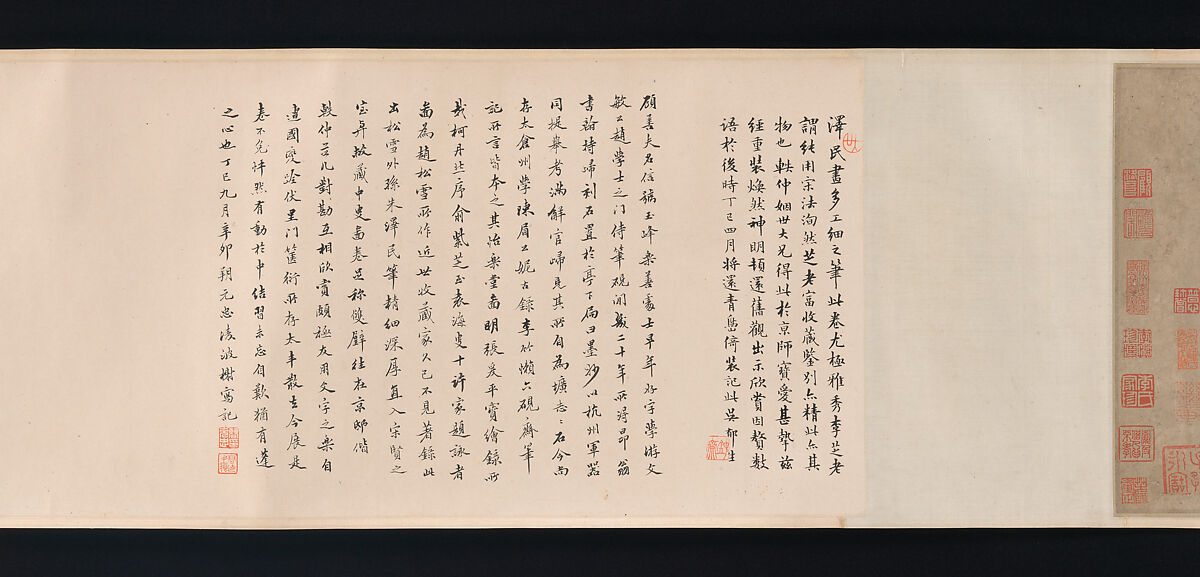 澤民畫多工細之筆此卷尤極雅秀李芝老
謂純用宋法洵然芝老富收藏鑒別亦精此亦其
物也 軼仲姻世大兄得此於京師寶愛甚摯茲
經重裝煥然神明頓還舊觀出示欣賞因贅數
語於後時丁巳四月將還青島倚裝記此吳郁生
顧善夫名信號玉峰樂善處士早年好字學游文
敏公趙學士之門侍筆硯間幾二十年所得昂翁
書翰持歸刻石置於亭下扁曰墨妙以杭州軍器
同提舉考滿解官歸見其所自為壙志志石今尚
存太倉州學陳眉公妮古錄李竹懶六硯齋筆
記所言皆本之其治樂堂畫明張爰平寶繪錄所
載柯丹丘序俞紫芝王袁海叟十許家題詠者
畫為趙松雪所作近世收藏家久已不見著錄此
出松雪外孫朱澤民筆精細深厚直入宋賢之
室與敝藏申叟畫卷足稱雙璧往在京邸偕
軼仲茗几對勘互相欣賞頗極友朋文字之樂自
遭國變跧伏里門篋衍所存太半散去今展是
卷不免怦然有動於中結習未忘自歎猶有蓬
之心也丁巳九月辛卯朔元忠淩波榭寫記